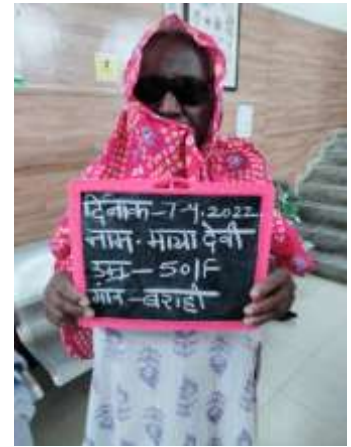 दिनांक-7-4.2022
नाम. माया देवी
उम्र - 50/F
गांव - बराही